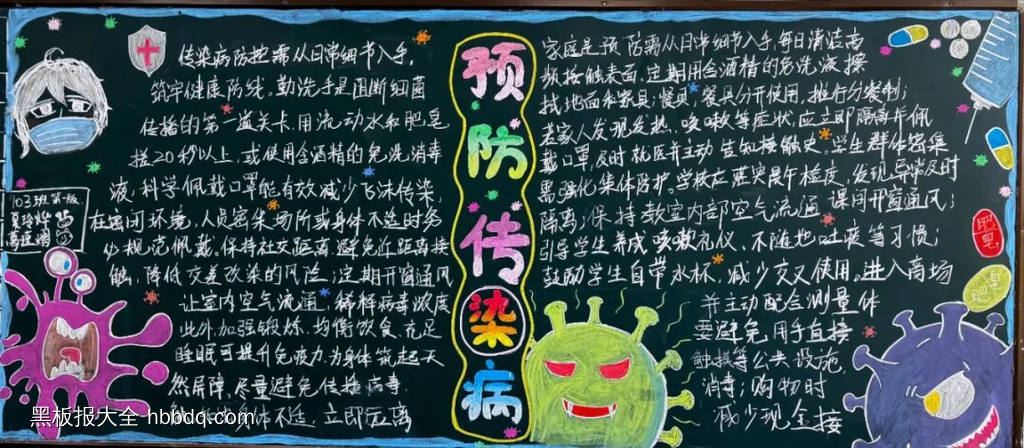 传染病防控需从日常细节入手,
筑牢健康防线。勤洗手是阻断细菌
传播的第一道关卡,用流动水和肥皂
搓20秒以上,或使用含酒精的免洗消毒
液,科学佩戴口罩能有效减少飞沫传染
在密闭环境,人员密集场所或身体不适时务
必规范佩戴。保持社交距离,避免近距离接
触,降低交差改染的风险;定期开窗通风
让室内空气流通,稀释病毒浓度
此外加强锻炼,均衡饮食,充足
睡眠可提升免疫力,为身体筑起天
然屏障,尽量避免传播病毒.
体不适,立即远离
103班第一版
预防传染病
家庭是预防需从日常细节入手,每日清洁高
频接触表面,定期用含酒精的免洗液擦
拭地面和家具;餐具,餐具分开使用,推行分餐制;
若家人发现发热、咳嗽等症状,应立即隔离并佩
戴口罩,及时就医并主动告知接触史。学生群体密集
需强化集体防护。学校应落实晨午检度,发现异常及时
隔离;保持教室内部空气流通,课间开窗通风;
引导学生养成咳嗽礼仪,不随地吐痰等习惯;
鼓励学生自带水杯,减少交叉使用。进入商场
并主动配合测量体
要避免用手直接
触摸等公共设施,
消毒;购物时
减少现金接
肥皂
肥皂
黑板报大全 hbbdq.com